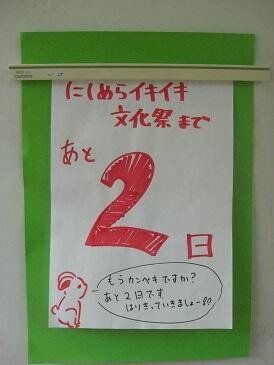 にしめらイキイキ
文化祭まで
あと
2
日
もうカンペキですか?
あと2日です
はりきっていきましょー!!